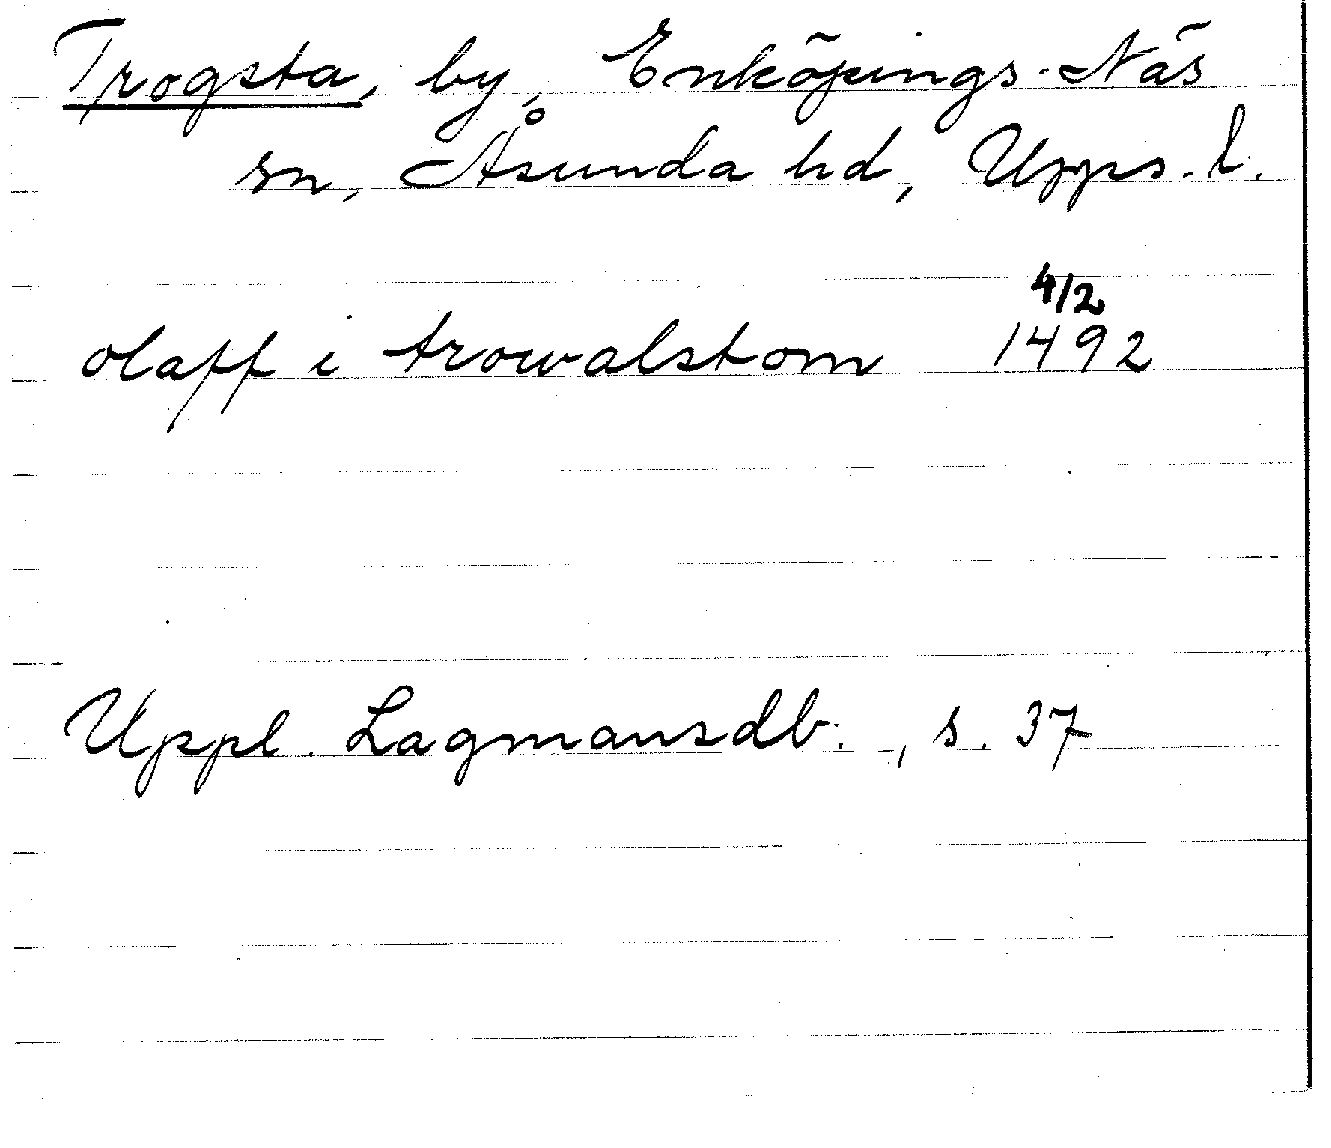 Trogsta, by, Enköpings-Näs
sn, Åsunda hd, Upps. l.
4/2
olaff i trowalstom 1492
Uppl. Lagmansdb., s. 37